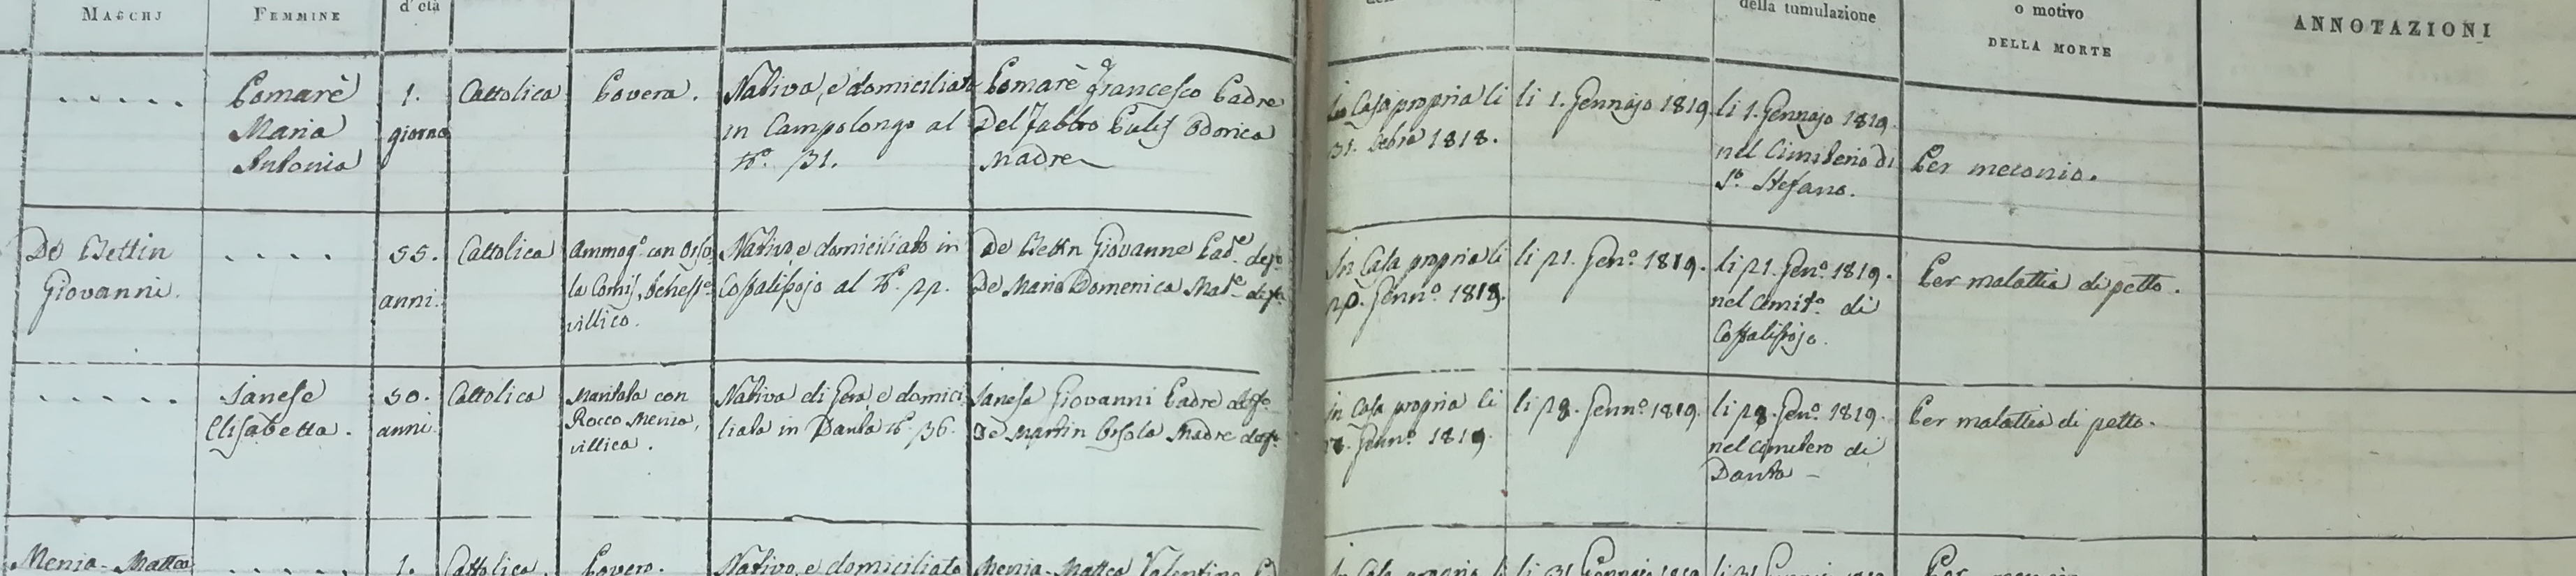 MASCHJ
FEMMINE
d'età
della tumulazione
o motivo
DELLA MORTE
ANNOTAZIONI
. . . . .
Comarè
Maria
Antonia
1.
giorno
Cattolica
Povera.
Nativa, e domiciliata
in Campolongo al
N.º 31.
Comarè Francesco Padre
Del Fabbro Odorica
Madre
In Casa propria li
31. 1818.
li 1. Gennajo 1819
li 1. Gennajo 1819
nel Cimiterio di
S.º Stefano.
Per meconio.
De Bettin
Giovanni.
. . . .
55.
anni.
Cattolica
Ammog.º con Orso
la
villico.
Nativo, e domiciliato in
Costalissojo al N.º 22.
De Bettin Giovanne Pad.e def.º
De Mario Domenica Mad.e def.ª
In Casa propria li
20. Genn.º 1819.
li 21. Gen.º 1819.
li 21. Gen.º 1819.
nel Cimit.º di
Costalissojo.
Per malattia di petto.
. . . . .
Janese
Elisabetta.
50.
anni
Cattolica
Maritata con
Rocco Menia,
villica.
Nativa di Gera e domici
liata in Danta N.º 36.
Janese Giovanni Padre def.º
De Martin Orsola Madre def.ª
In Casa propria li
Genn.º 1819.
li 28. Genn.º 1819.
li 28. Gen.º 1819.
nel Cimitero di
Danta –
Per malattia di petto.
Menia-Matteo
. . . . .
1.
Cattolica
Povero.
Nativo, e domiciliato
Menia-Matteo Valentino
In Casa propria li
li 31 Gennajo 1819
li 31
Per